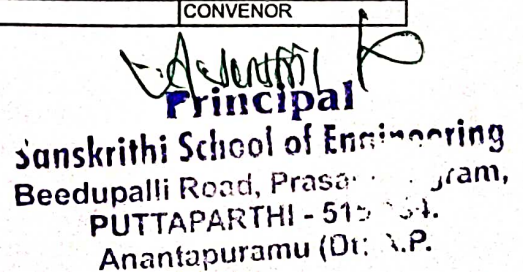 CONVENOR
Principal
Sanskrithi School of Engineering
Beedupalli Road,
PUTTAPARTHI -
Anantapuramu (Dt: A.P.